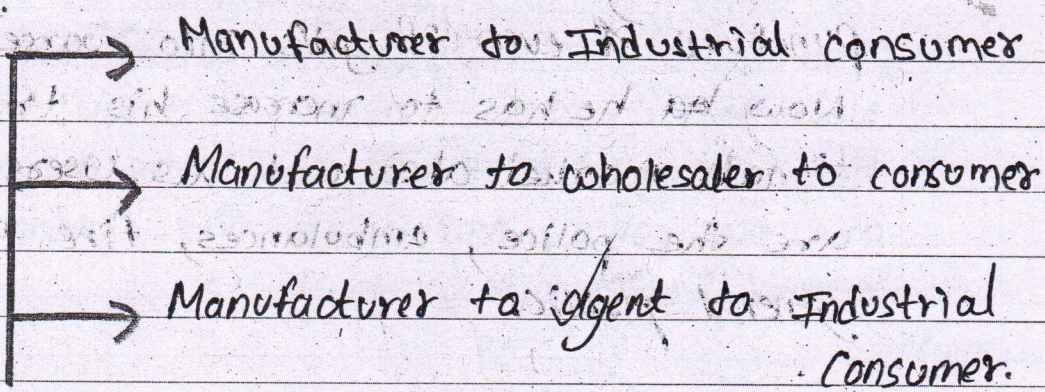 Manufacturer to Industrial consumer
Manufacturer to wholesaler to consumer
Manufacturer to Agent to Industrial
Consumer.